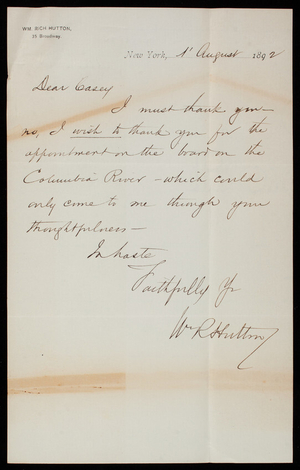 WM. RICH HUTTON,
35 Broadway.
New York, 1st August 1892
Dear Casey
I must thank you—
no, I wish to thank you for the
appointment on the board on the
Columbia River — which could
only come to me through your
thoughtfulness —
In haste
Faithfully Yr
Wm R Hutton